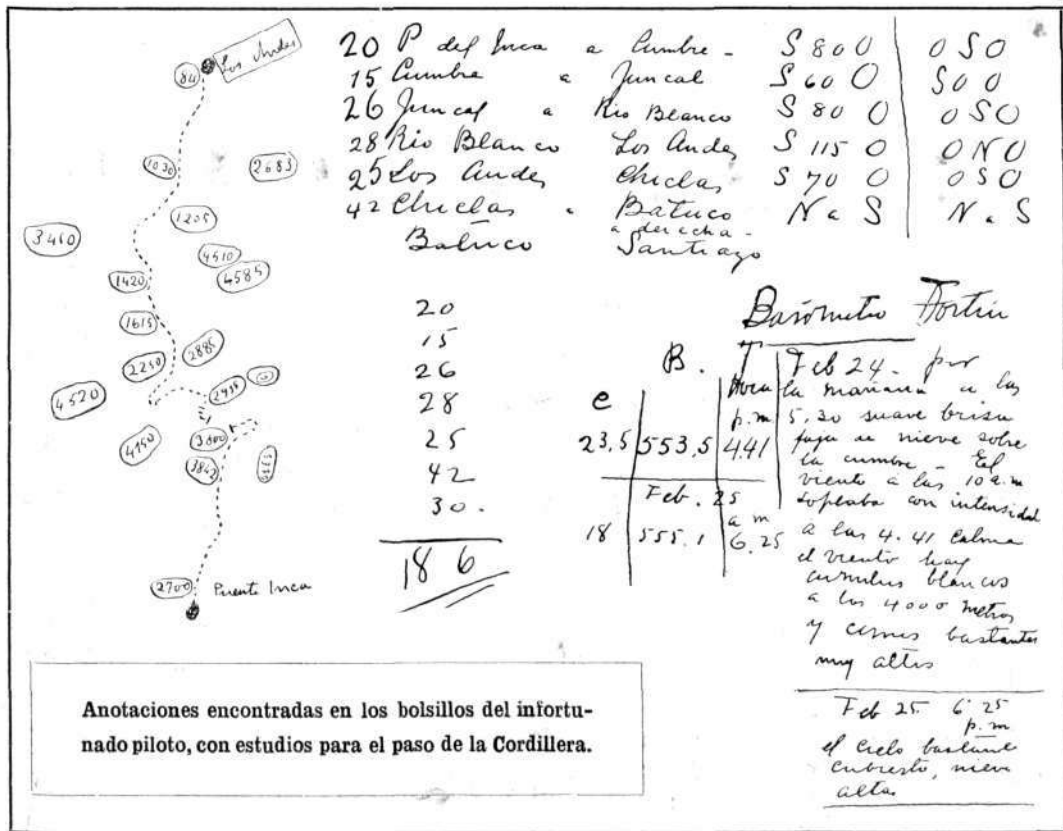 Los Andes
84
1030
2683
1205
3460
4510
4585
1420
1615
2885
2250
4520
4190
3800
3842
2700 Puente Inca
20 P del Inca a Cumbre - S 80 O O S O
15 Cumbre a Juncal S 60 O S O O
26 Juncal a Rio Blanco S 80 O O S O
28 Rio Blanco Los Andes S 115 O O N O
25 Los Andes Chiclas S 70 O O S O
42 Chiclas a Batuco N a S N a S
a derecha -
Batuco Santiago
20
15
26
28
25
42
30.
18 6
Barómetro Fortin
B. T
e Hora
p.m
23,5 553,5 4.41
Feb. 25
a m
18 555.1 6.25
Feb 24 - por
la mañana a las
5,30 suave brisa
de nieve sobre
la cumbre - El
viento a las 10 a.m
sopeaba con intensidad
a las 4.41 Calma
el viento hay
cumulus blancos
a los 4000 metros
y cirrus bastantes
muy altos
Feb 25. 6 25
p.m
el cielo bastante
cubierto, nieve
altas
Anotaciones encontradas en los bolsillos del infortu-
nado piloto, con estudios para el paso de la Cordillera.